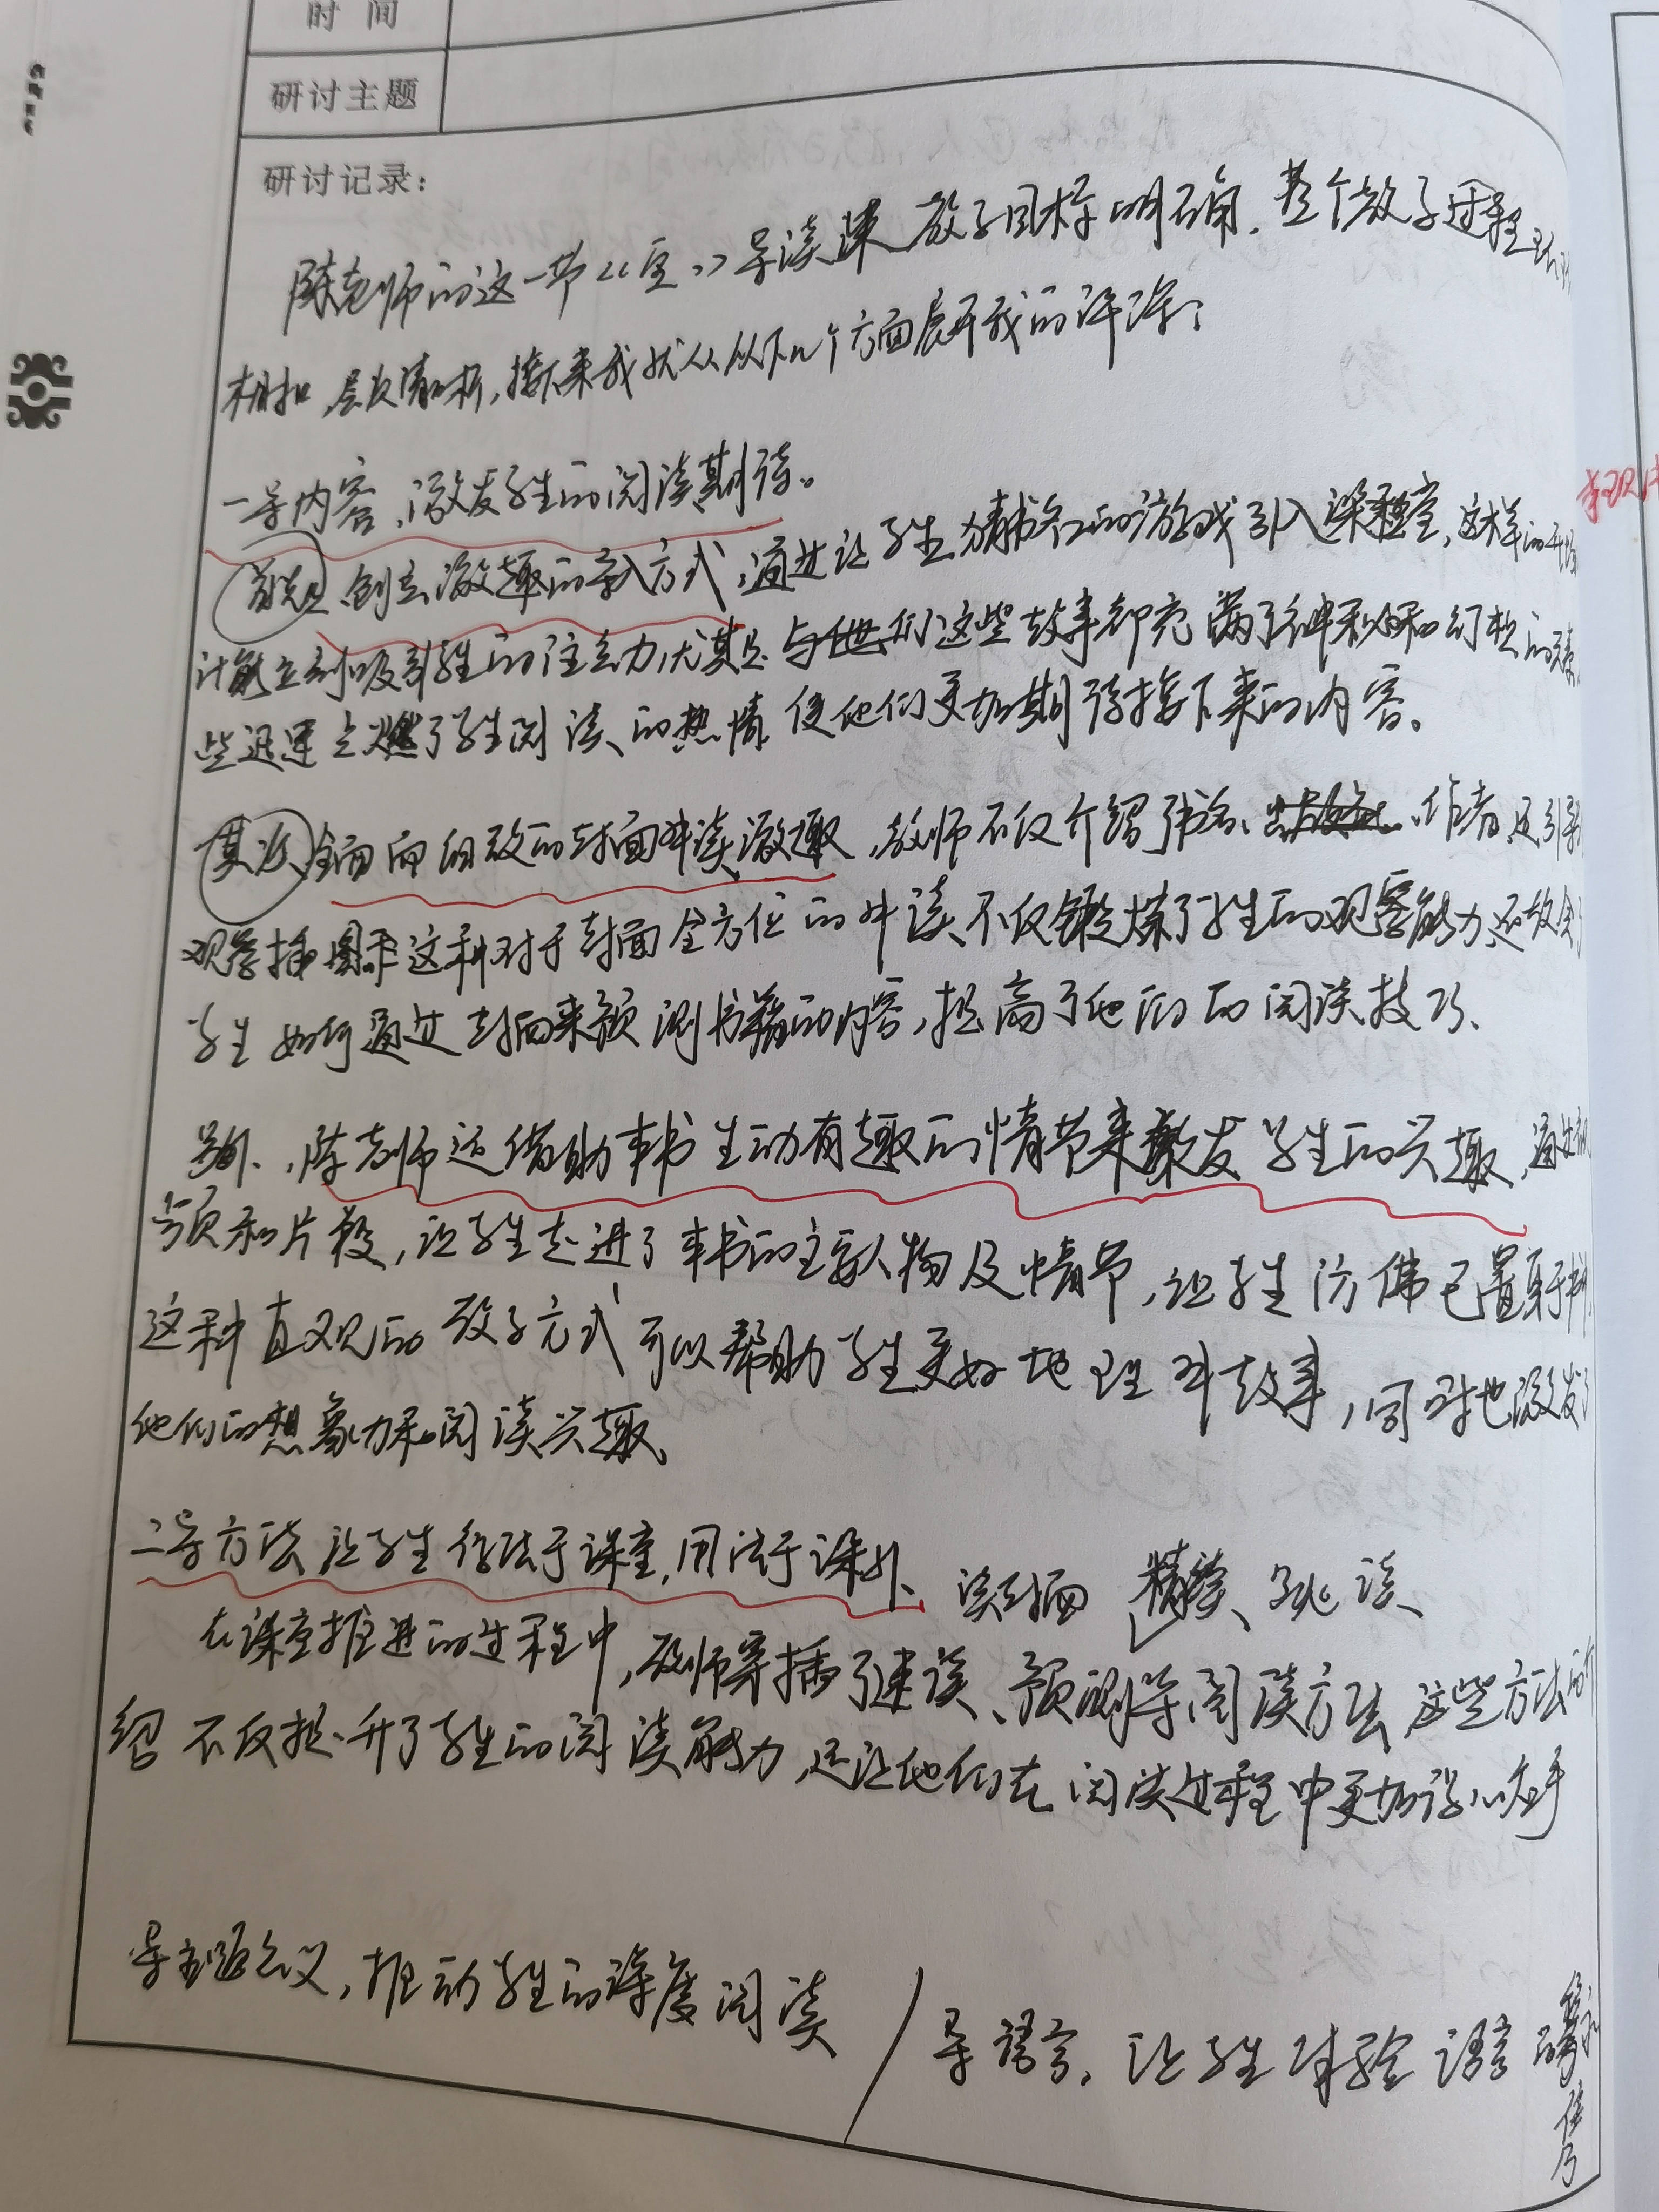 时 间
研讨主题
研讨记录：
陈老师的这一节《》导读课 教学目标明确，整个教学过程环环
相扣，层次清晰，接下来我就从以下几个方面展开我的评课：
一导内容，激发学生的阅读期待。
首先 创立激趣的导入方式，通过让学生猜书名的游戏引入课堂，这样的开场
计能立刻吸引学生的注意力，尤其是 这些故事都充满了神秘和幻想的
些迅速点燃了学生阅读的热情 使他们更加期待接下来的内容。
其次 全面而细致的封面解读激趣，教师不仅介绍了书名、作者，还引导
观察插图 这种对于封面全方位的解读、不仅锻炼了学生的观察能力 还教会
学生如何通过封面来预测书籍的内容，提高了他们的阅读技巧、
另外、陈老师还借助本书生动有趣的情节来激发学生的兴趣，通过
频和片段，让学生走进了本书的主要人物及情节，让学生仿佛已置身于
这种直观的教学方式可以帮助学生更好地理解故事，同时也激发了
他们的想象力和阅读兴趣、
二导方法 让学生得法于课堂，用法于课外、读封面 精读、跳读、
在课堂推进的过程中，教师穿插了速读、预测等阅读方法 这些方法的介
绍 不仅提升了学生的阅读能力，还让他们在阅读过程中更加得心应手
导主题意义，推动学生的深度阅读 / 导语言，让学生体验语言的